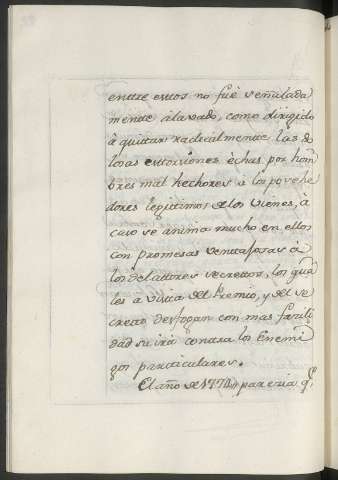 entre estos no fué señalada
mente álavado, como dirigido
á quitar radicalmente las do
losas estorsiones échas por hom
bres mal hechores á los poséhe
dores legitimos de los vienes, á
cuio se ánima mucho en ellos
con promesas ventajosas á
los delattores secrettos, los qua
les a vista del Premio, y del se
creto desfogan con mas facili
dad su ira contra los Enemi
gos particulares.
El año de 1774, parecia q.e